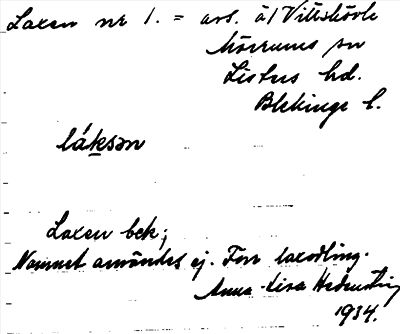 Laxen nr 1. = avs. å/ Vittskövle
Mörrums sn
Listers hd.
Blekinge l.
láksən
Laxen bek;
Namnet användes ej. Förr laxodling.
Anna-Lisa
1934.